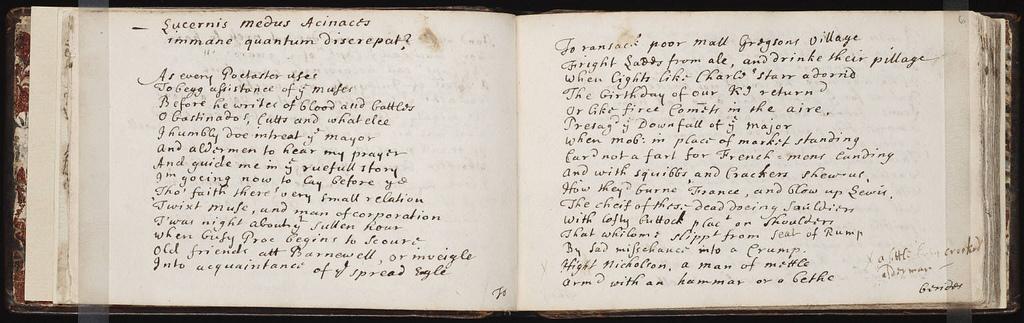 Lucernis medus Acinaces
immane quantum discrepat?
As every Poetaster uses
To begg assistance of yͤ muses
Before he writes of blood and battles
Obastinado's, Cutts and what else
I humbly doe intreat yͤ mayor
And aldermen to hear my prayer
And guide me in yͤ ruefull story
I'm goeing now to lay before ye
Tho' faith there's very small relation
Twixt muse, and man of corporation
T'was night about yͤ sullen hour
when busy Proc begins to scoure
Old friends att Barnewell, or inveigle
Into acquaintance of yͤ spread Eagle
To
6
To ransack poor mall Gregsons village
Fright Ladds from ale, and drinke their pillage
When lights like Charls' starr adornd
The birthday of our K return'd
Or like firce Comets in the aire
Presag'd yͤ Downfall of yͤ major
When mob: in place of market standing
Car'd not a fart for French-mens landing
And with squibbs and Crackers shew us,
How they'd burne France, and blow up Lewis.
The cheif of these dead doeing Sauldiers
With lofty Buttock plac't on shoulders
That whilome slipp't from seat of Rump
By sad mischance into a Crump.
Hight Nicholson, a man of mettle
Arm'd with an hammar or a bethe
x a little crooked
alderman
besides